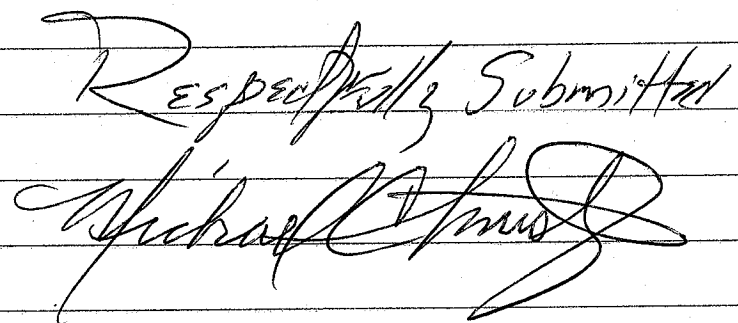 Respectfully Submitted
Michael